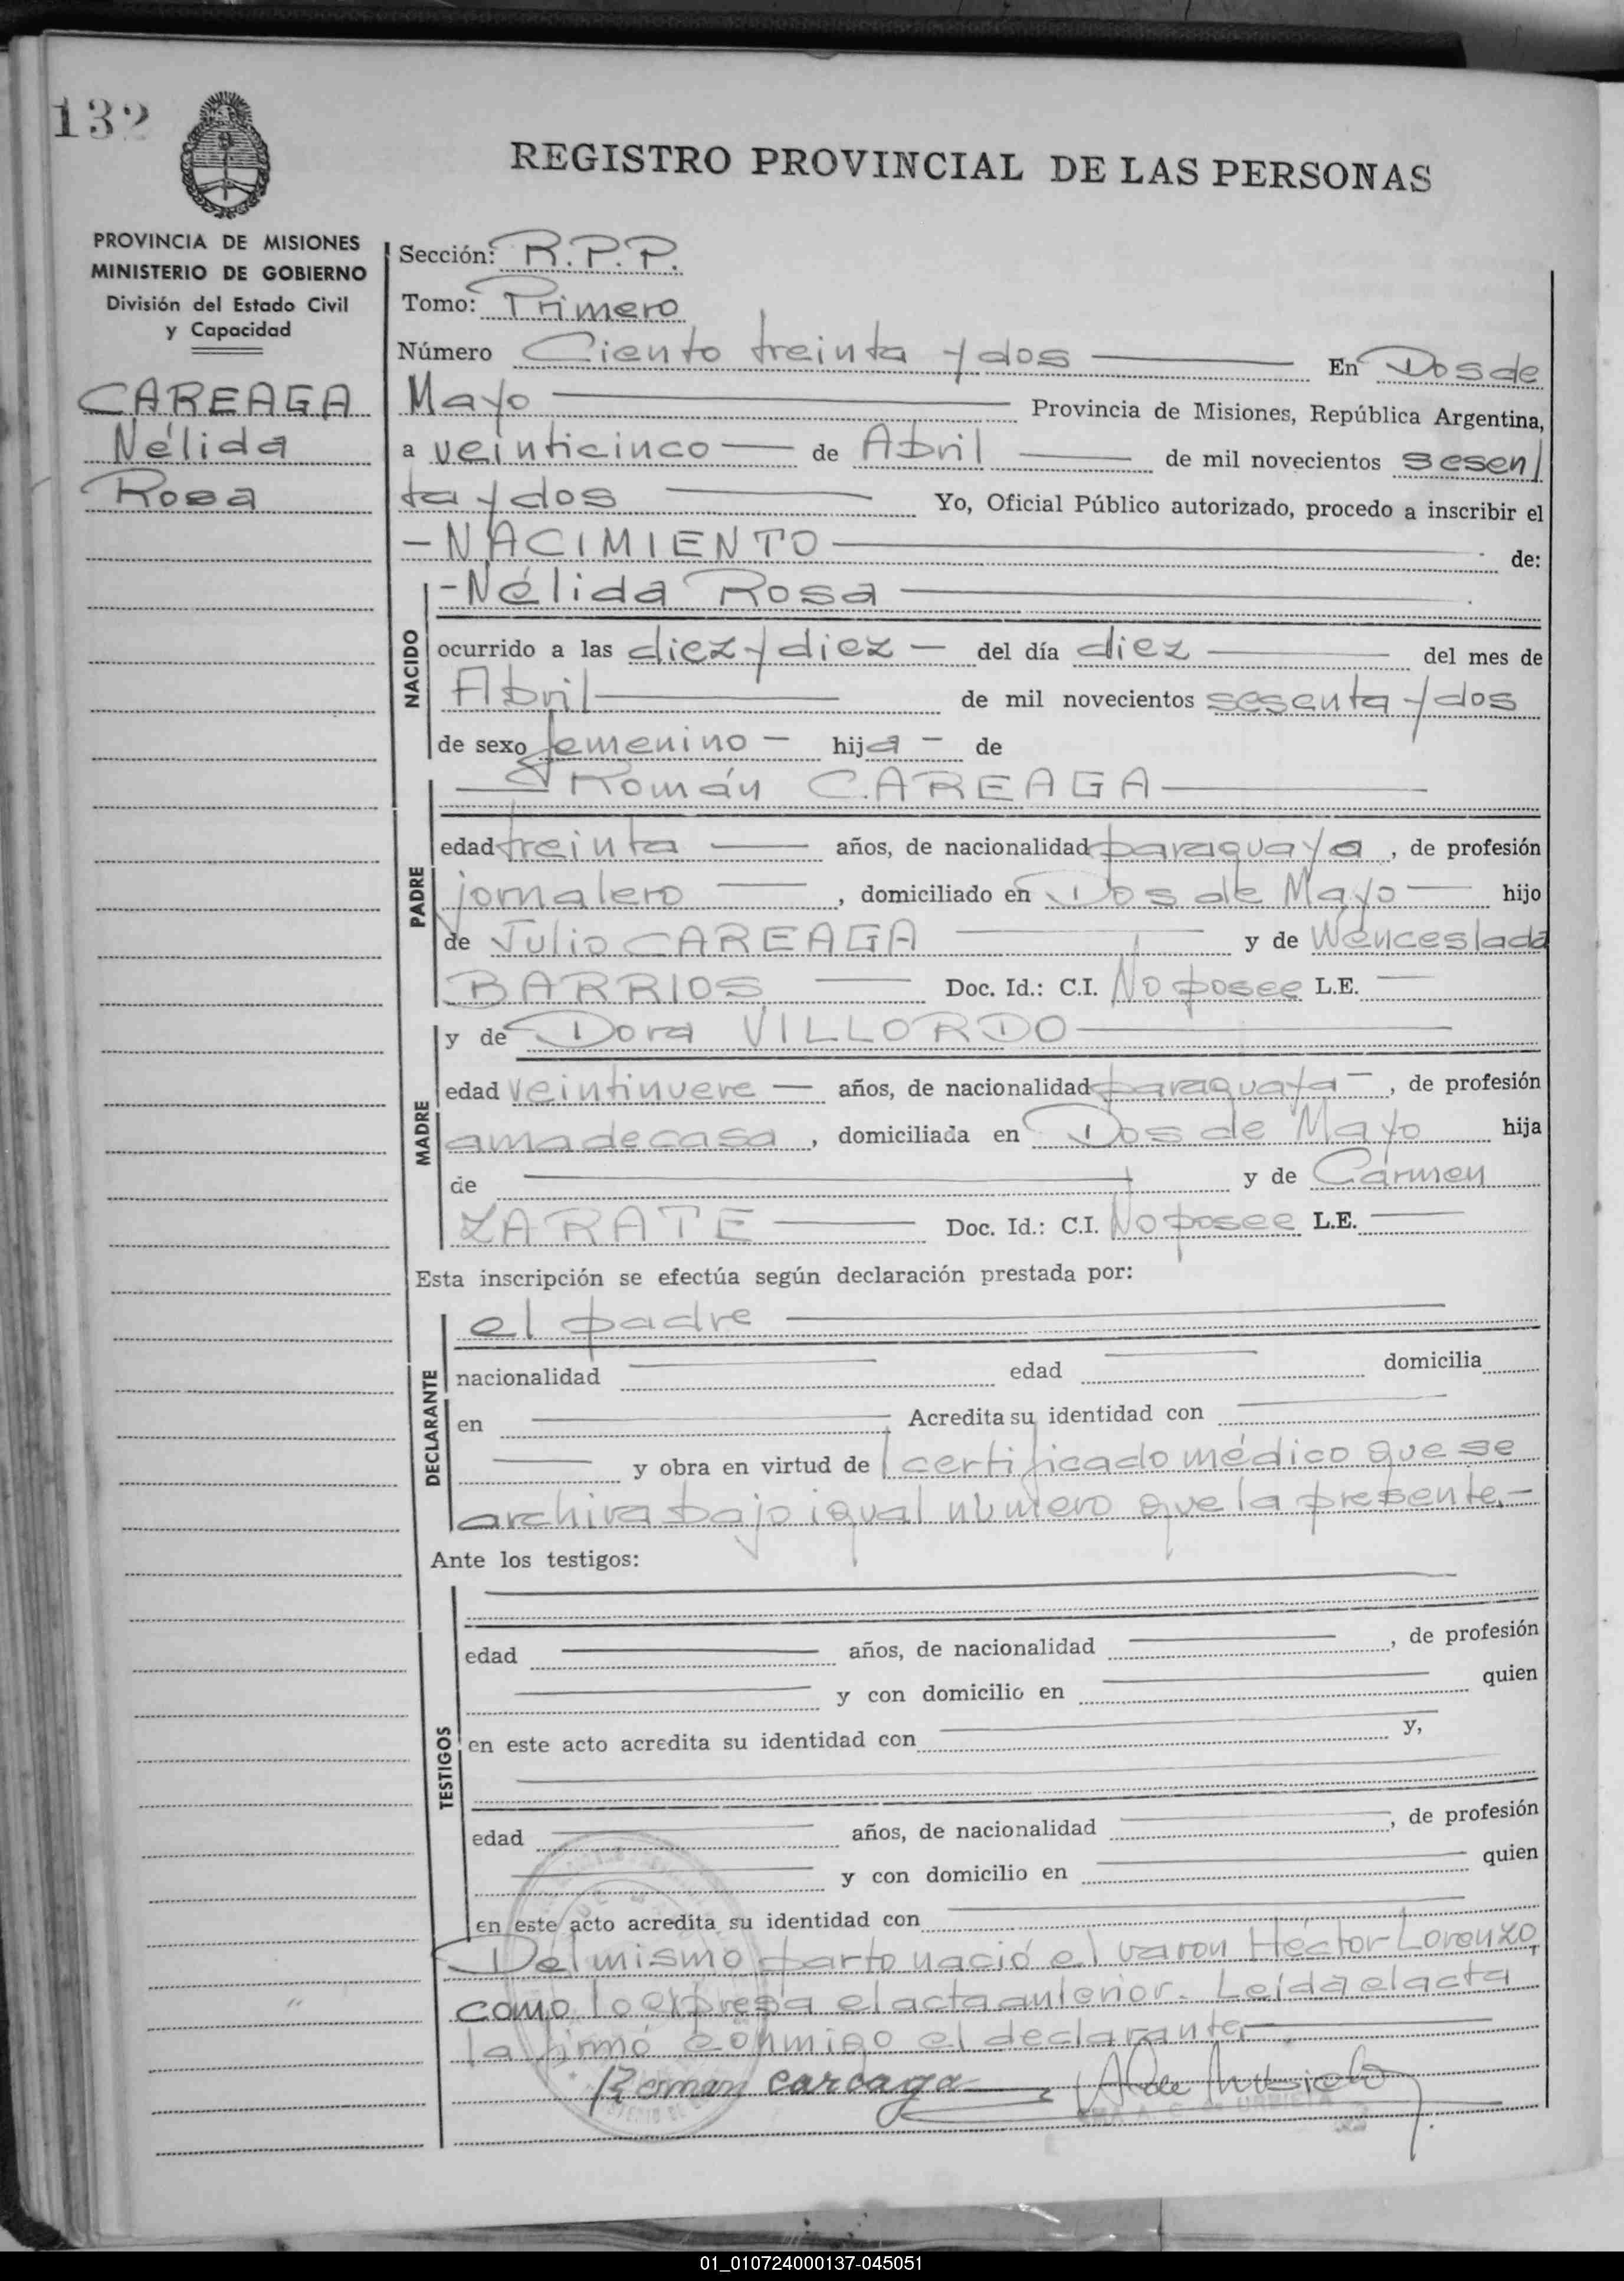 132
REGISTRO PROVINCIAL DE LAS PERSONAS
PROVINCIA DE MISIONES
MINISTERIO DE GOBIERNO
División del Estado Civil
y Capacidad
CAREAGA
Nélida
Rosa
Sección: R.P.P.
Tomo: Primero
Número Ciento treinta y dos En Dos de
Mayo Provincia de Misiones, República Argentina,
a veinticinco de Abril de mil novecientos sesen
ta y dos Yo, Oficial Público autorizado, procedo a inscribir el
-NACIMIENTO de:
NACIDO
-Nélida Rosa
ocurrido a las diez y diez - del día diez del mes de
Abril de mil novecientos sesenta y dos
de sexo femenino - hija - de
PADRE
Román CAREAGA
edad treinta años, de nacionalidad paraguaya, de profesión
jornalero, domiciliado en Dos de Mayo hijo
de Julio CAREAGA y de Wenceslada
BARRIOS Doc. Id.: C.I. No posee L.E.
MADRE
y de Dora VILLORDO
edad veintinueve años, de nacionalidad paraguaya -, de profesión
ama de casa, domiciliada en Dos de Mayo hija
de y de Cármen
ZARATE Doc. Id.: C.I. No posee L.E.
Esta inscripción se efectúa según declaración prestada por:
DECLARANTE
el padre
nacionalidad edad domicilia
en Acredita su identidad con
y obra en virtud de certificado médico que se
archiva bajo igual número que la presente.-
Ante los testigos:
TESTIGOS
edad años, de nacionalidad , de profesión
y con domicilio en quien
en este acto acredita su identidad con y,
edad años, de nacionalidad , de profesión
y con domicilio en quien
en este acto acredita su identidad con
Del mismo parto nació el varon Héctor Lorenzo,
como lo expresa el acta anterior. Leída el acta
la firmó conmigo el declarante
careaga
01_010724000137-045051